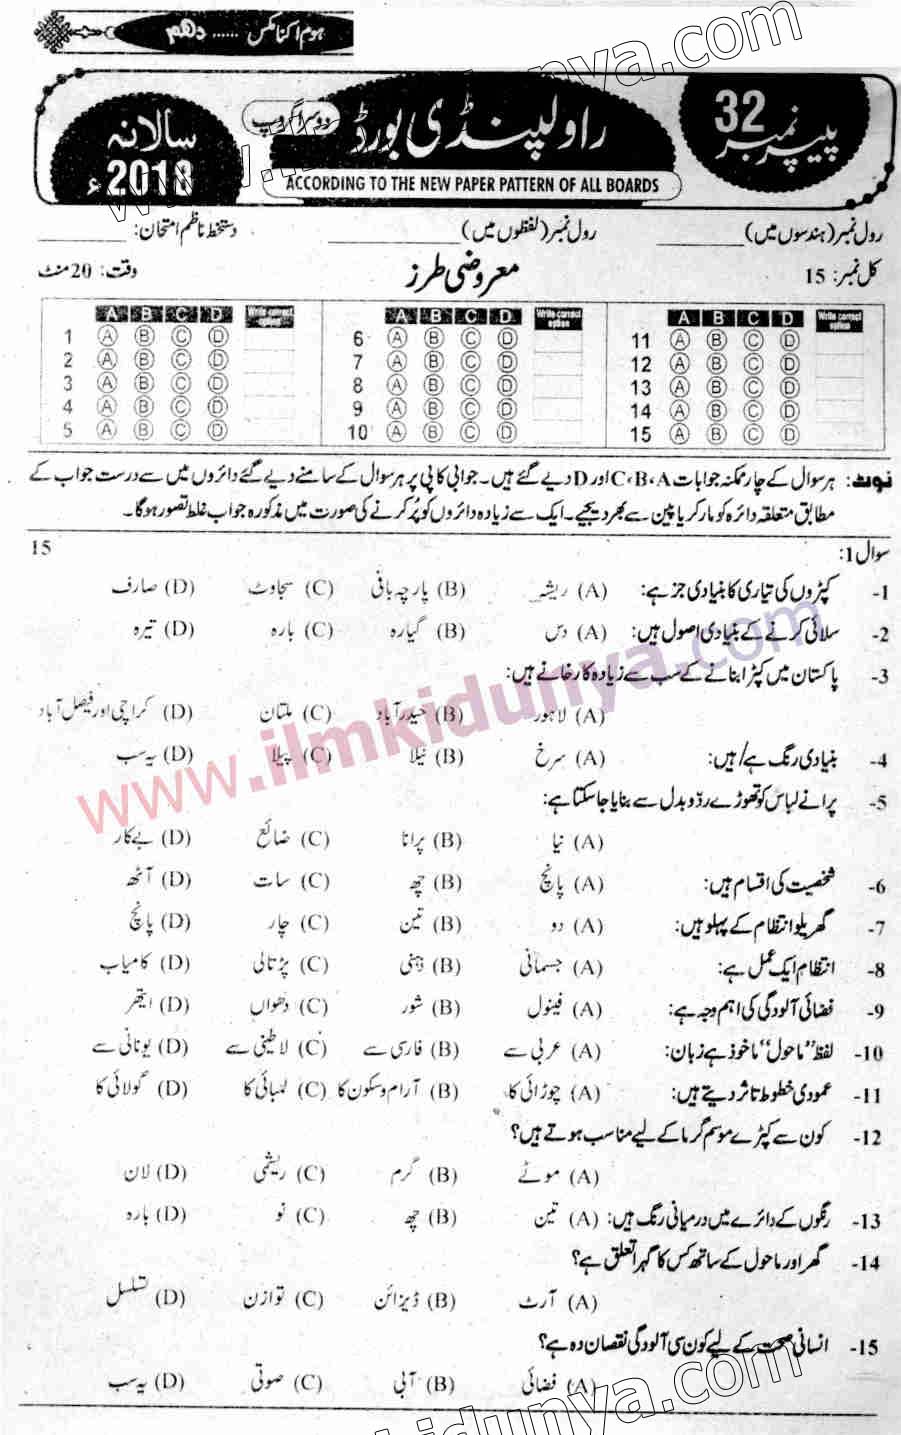 ہوم اکنامکس ...... دہم
پیپر نمبر 32
راولپنڈی بورڈ
دوسرا گروپ
سالانہ 2018ء
ACCORDING TO THE NEW PAPER PATTERN OF ALL BOARDS
رول نمبر (ہندسوں میں) ________ رول نمبر (لفظوں میں) ________ دستخط ناظم امتحان: ________
کل نمبر: 15 معروضی طرز وقت: 20 منٹ
A B C D Write correct option A B C D Write correct option A B C D Write correct option
1 A B C D 6 A B C D 11 A B C D
2 A B C D 7 A B C D 12 A B C D
3 A B C D 8 A B C D 13 A B C D
4 A B C D 9 A B C D 14 A B C D
5 A B C D 10 A B C D 15 A B C D
نوٹ: ہر سوال کے چار ممکنہ جوابات C، B، A اور D دیے گئے ہیں۔ جوابی کاپی پر ہر سوال کے سامنے دیے گئے دائروں میں سے درست جواب کے
مطابق متعلقہ دائرہ کو مارکر یا پین سے بھر دیجیے۔ ایک سے زیادہ دائروں کو پُر کرنے کی صورت میں مذکورہ جواب غلط تصور ہوگا۔
سوال 1: 15
1- کپڑوں کی تیاری کا بنیادی جز ہے: (A) ریشہ (B) پارچہ بافی (C) سجاوٹ (D) صارف
2- سلائی کرنے کے بنیادی اصول ہیں: (A) دس (B) گیارہ (C) بارہ (D) تیرہ
3- پاکستان میں کپڑا بنانے کے سب سے زیادہ کارخانے ہیں:
(A) لاہور (B) حیدرآباد (C) ملتان (D) کراچی اور فیصل آباد
4- بنیادی رنگ ہے/ہیں: (A) سرخ (B) نیلا (C) پیلا (D) یہ سب
5- پرانے لباس کو تھوڑے ردّ و بدل سے بنایا جا سکتا ہے:
(A) نیا (B) پرانا (C) ضائع (D) بے کار
6- شخصیت کی اقسام ہیں: (A) پانچ (B) چھ (C) سات (D) آٹھ
7- گھریلو انتظام کے پہلو ہیں: (A) دو (B) تین (C) چار (D) پانچ
8- انتظام ایک عمل ہے: (A) جسمانی (B) ذہنی (C) پڑتالی (D) کامیاب
9- فضائی آلودگی کی اہم وجہ ہے: (A) فینول (B) شور (C) دھواں (D) ایتھر
10- لفظ ”ماحول“ ماخوذ ہے زبان: (A) عربی سے (B) فارسی سے (C) لاطینی سے (D) یونانی سے
11- عمودی خطوط تاثر دیتے ہیں: (A) چوڑائی کا (B) آرام و سکون کا (C) لمبائی کا (D) گولائی کا
12- کون سے کپڑے موسم گرما کے لیے مناسب ہوتے ہیں؟
(A) موٹے (B) گرم (C) ریشمی (D) لان
13- رنگوں کے دائرے میں درمیانی رنگ ہیں: (A) تین (B) چھ (C) نو (D) بارہ
14- گھر اور ماحول کے ساتھ کس کا گہرا تعلق ہے؟
(A) آرٹ (B) ڈیزائن (C) توازن (D) تسلسل
15- انسانی صحت کے لیے کون سی آلودگی نقصان دہ ہے؟
(A) فضائی (B) آبی (C) صوتی (D) یہ سب
www.ilmkidunya.com